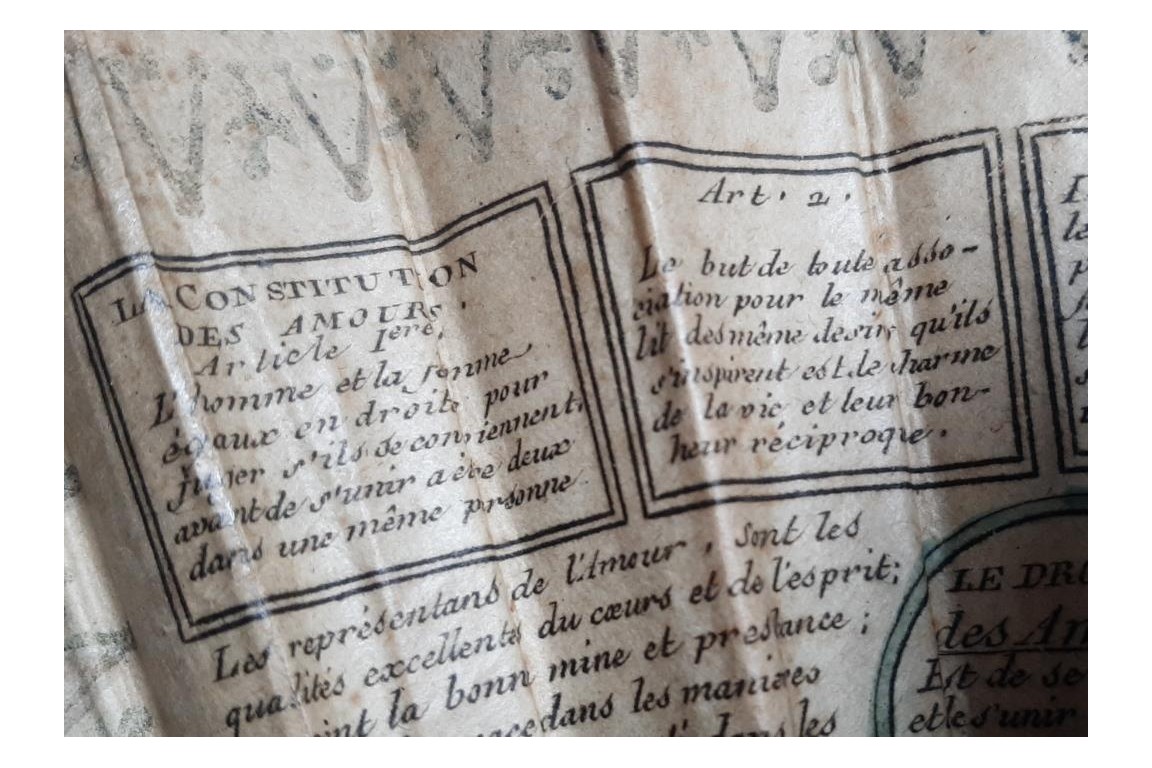 LA CONSTITUTION
DES AMOURS.
Article Iere.
L'homme et la femme
égaux en droits pour
juger s'ils se conviennent,
avant de s'unir a être deux
dans une même prsonne
Art. 2.
Le but de toute asso-
ciation pour le même
lit des même desirs qu'ils
s'inspirent est le charme
de la vie et leur bon-
heur réciproque.
Les représentans de l'Amour, sont les
qualités excellents du cœurs et de l'esprit;
la bonn mine et prestance;
dans les manieres
dans les
LE DRO
des Am
Est de se
et le s'unir